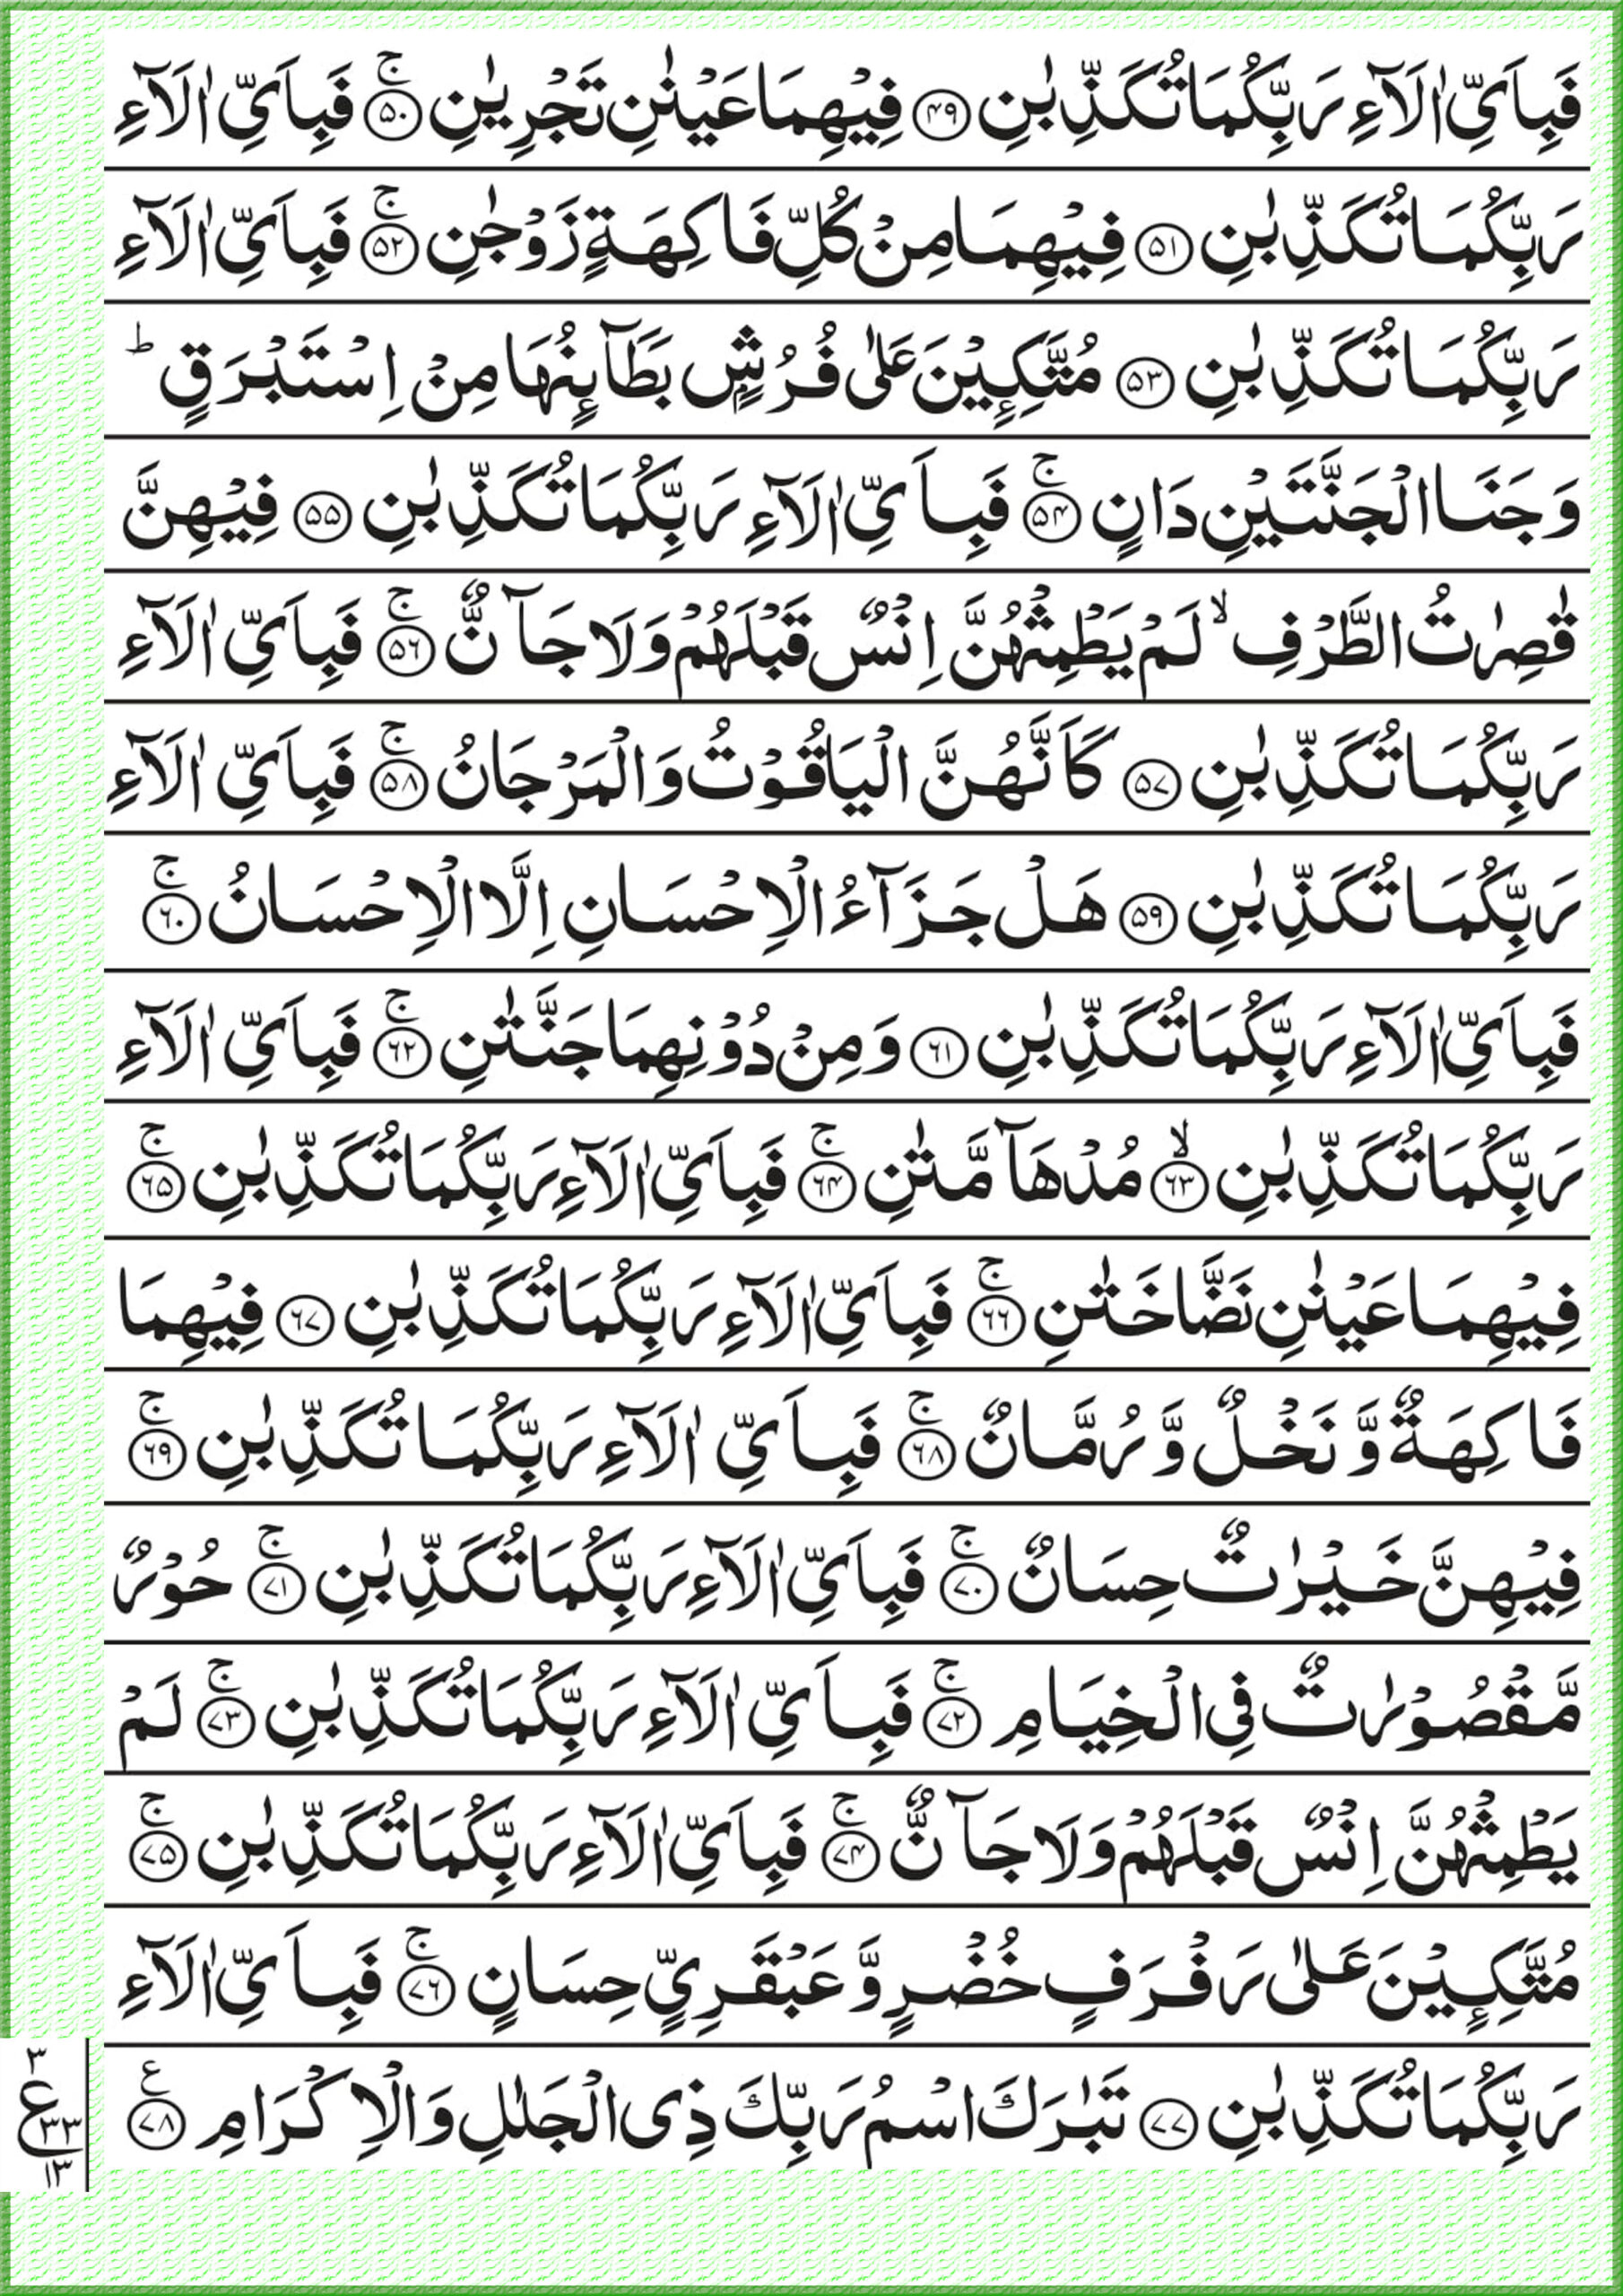 فَبِاَىِّ اٰلَآءِ رَبِّكُمَا تُكَذِّبٰنِ ﴿۴۹﴾ فِيْهِمَا عَيْنٰنِ تَجْرِيٰنِ ۚ﴿۵۰﴾ فَبِاَىِّ اٰلَآءِ
رَبِّكُمَا تُكَذِّبٰنِ ﴿۵۱﴾ فِيْهِمَا مِنْ كُلِّ فَاكِهَةٍ زَوْجٰنِ ۚ﴿۵۲﴾ فَبِاَىِّ اٰلَآءِ
رَبِّكُمَا تُكَذِّبٰنِ ﴿۵۳﴾ مُتَّكِـِٕيْنَ عَلٰى فُرُشٍۭ بَطَآىِٕنُهَا مِنْ اِسْتَبْرَقٍ ؕ
وَجَنَا الْجَنَّتَيْنِ دَانٍ ۚ﴿۵۴﴾ فَبِاَىِّ اٰلَآءِ رَبِّكُمَا تُكَذِّبٰنِ ﴿۵۵﴾ فِيْهِنَّ
قٰصِرٰتُ الطَّرْفِ ۙ لَمْ يَطْمِثْهُنَّ اِنْسٌ قَبْلَهُمْ وَلَا جَآنٌّ ۚ﴿۵۶﴾ فَبِاَىِّ اٰلَآءِ
رَبِّكُمَا تُكَذِّبٰنِ ﴿۵۷﴾ كَاَنَّهُنَّ الْيَاقُوْتُ وَالْمَرْجَانُ ۚ﴿۵۸﴾ فَبِاَىِّ اٰلَآءِ
رَبِّكُمَا تُكَذِّبٰنِ ﴿۵۹﴾ هَلْ جَزَآءُ الْاِحْسَانِ اِلَّا الْاِحْسَانُ ۚ﴿۶۰﴾
فَبِاَىِّ اٰلَآءِ رَبِّكُمَا تُكَذِّبٰنِ ﴿۶۱﴾ وَمِنْ دُوْنِهِمَا جَنَّتٰنِ ۚ﴿۶۲﴾ فَبِاَىِّ اٰلَآءِ
رَبِّكُمَا تُكَذِّبٰنِ ۙ﴿۶۳﴾ مُدْهَآمَّتٰنِ ۚ﴿۶۴﴾ فَبِاَىِّ اٰلَآءِ رَبِّكُمَا تُكَذِّبٰنِ ۚ﴿۶۵﴾
فِيْهِمَا عَيْنٰنِ نَضَّاخَتٰنِ ۚ﴿۶۶﴾ فَبِاَىِّ اٰلَآءِ رَبِّكُمَا تُكَذِّبٰنِ ﴿۶۷﴾ فِيْهِمَا
فَاكِهَةٌ وَّ نَخْلٌ وَّ رُمَّانٌ ۚ﴿۶۸﴾ فَبِاَىِّ اٰلَآءِ رَبِّكُمَا تُكَذِّبٰنِ ۚ﴿۶۹﴾
فِيْهِنَّ خَيْرٰتٌ حِسَانٌ ۚ﴿۷۰﴾ فَبِاَىِّ اٰلَآءِ رَبِّكُمَا تُكَذِّبٰنِ ۚ﴿۷۱﴾ حُوْرٌ
مَّقْصُوْرٰتٌ فِى الْخِيَامِ ۚ﴿۷۲﴾ فَبِاَىِّ اٰلَآءِ رَبِّكُمَا تُكَذِّبٰنِ ۚ﴿۷۳﴾ لَمْ
يَطْمِثْهُنَّ اِنْسٌ قَبْلَهُمْ وَلَا جَآنٌّ ۚ﴿۷۴﴾ فَبِاَىِّ اٰلَآءِ رَبِّكُمَا تُكَذِّبٰنِ ۚ﴿۷۵﴾
مُتَّكِـِٕيْنَ عَلٰى رَفْرَفٍ خُضْرٍ وَّ عَبْقَرِىٍّ حِسَانٍ ۚ﴿۷۶﴾ فَبِاَىِّ اٰلَآءِ
رَبِّكُمَا تُكَذِّبٰنِ ﴿۷۷﴾ تَبٰرَكَ اسْمُ رَبِّكَ ذِى الْجَلٰلِ وَالْاِكْرَامِ ﴿۷۸﴾ ع
۳
ع ۳۳
۱۳